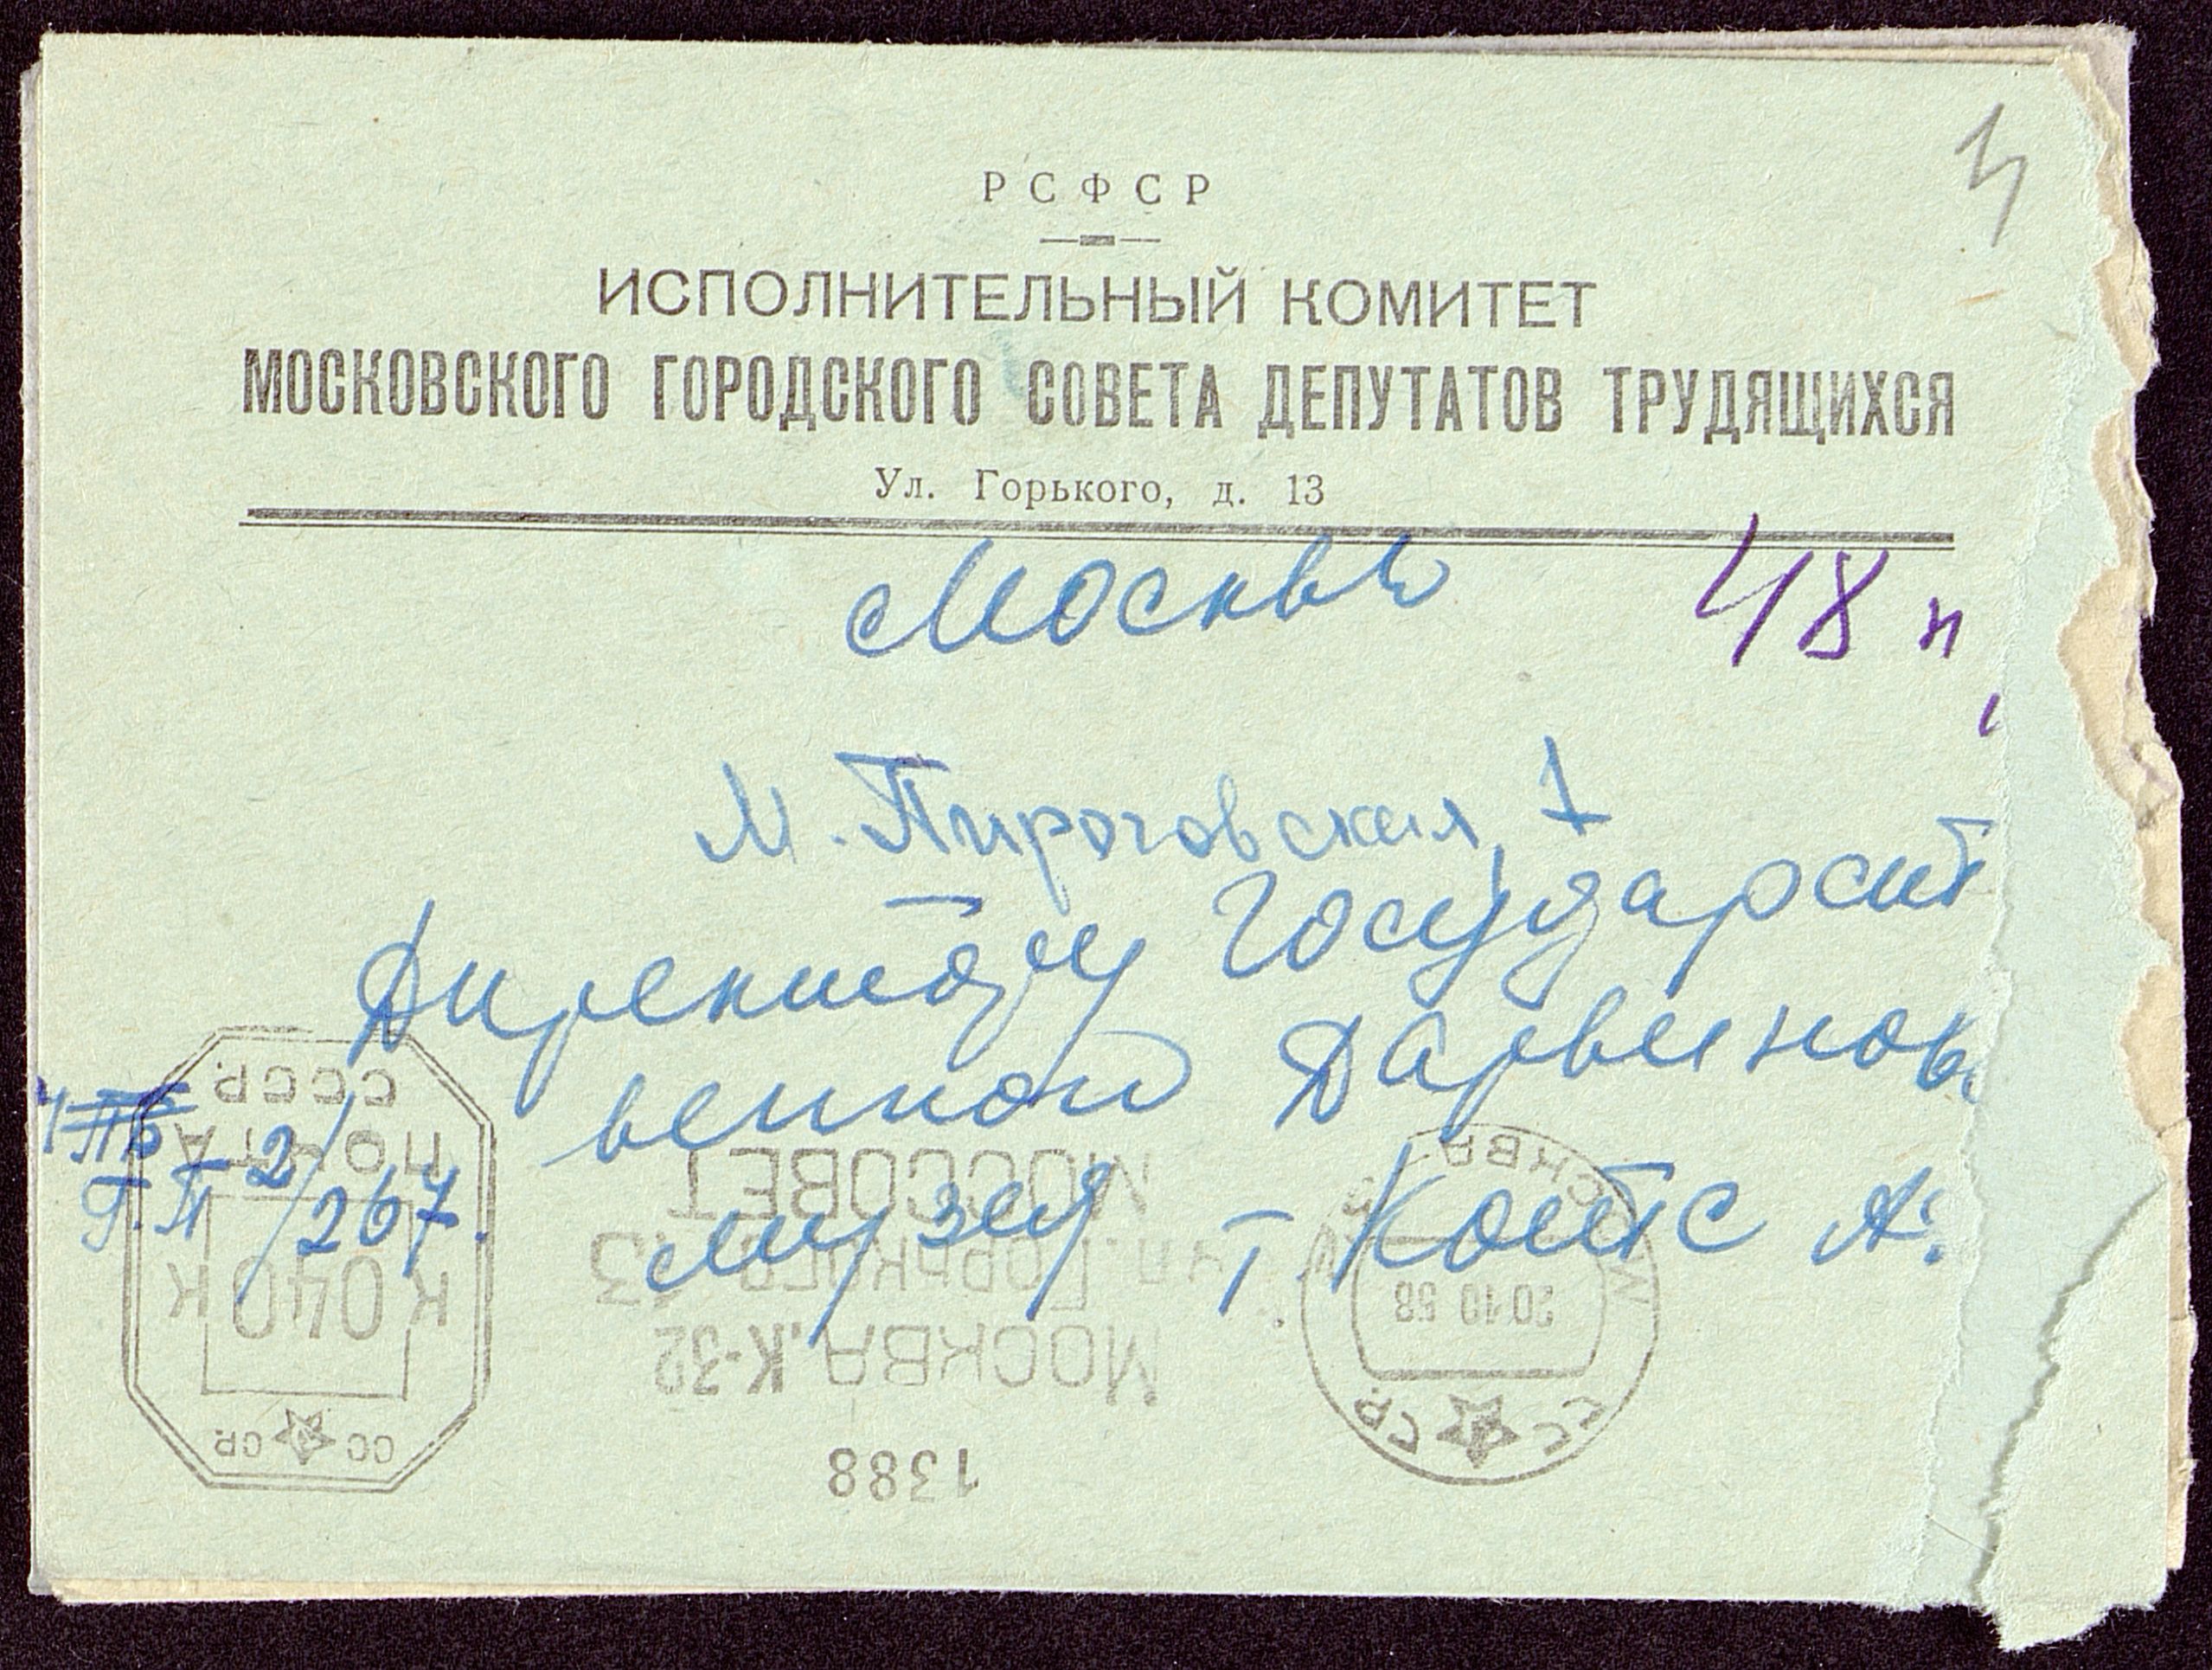 РСФСР
ИСПОЛНИТЕЛЬНЫЙ КОМИТЕТ
МОСКОВСКОГО ГОРОДСКОГО СОВЕТА ДЕПУТАТОВ ТРУДЯЩИХСЯ
Ул. Горького, д. 13
Москва
48 н
М. Пироговская, 1
Директору Государст
венного Дарвинов.
музея т. Котс А.
Г.П 2/267.
СССР.
ПОЧТА
К 040 К
СС СР
МОССОВЕТ
УЛ. ГОРЬКОГО, 13
МОСКВА, К-32
1388
МОСКВА
20 10 58
СС СР